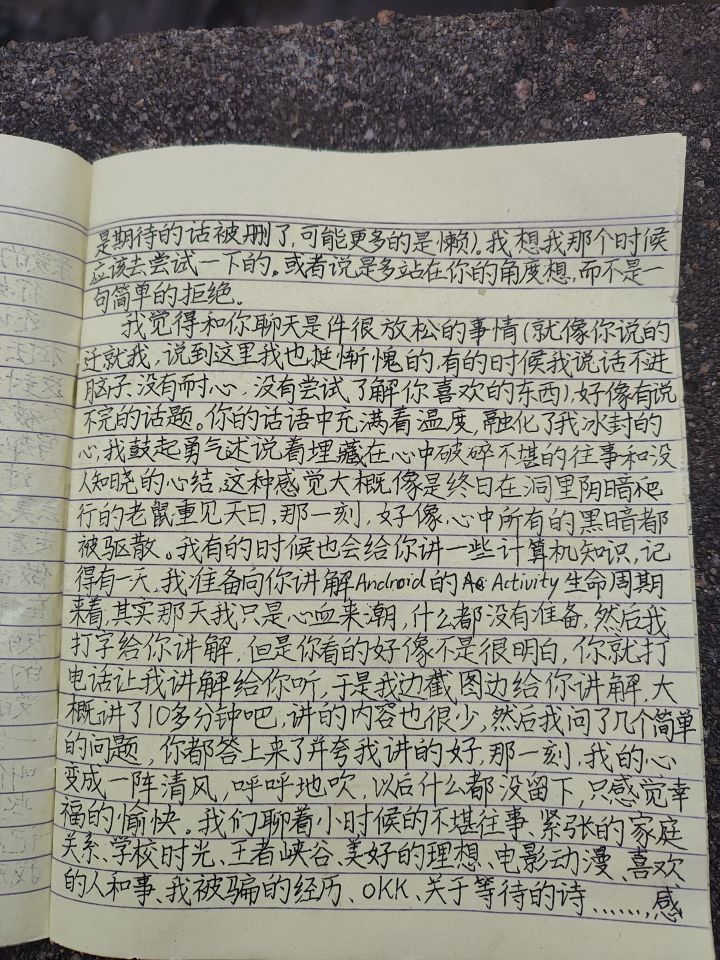 是期待的话被删了,可能更多的是懒)。我想我那个时候
应该去尝试一下的。或者说是多站在你的角度想,而不是一
句简单的拒绝。
我觉得和你聊天是件很放松的事情(就像你说的
迁就我,说到这里我也挺惭愧的,有的时候我说话不进
脑子、没有耐心,没有尝试了解你喜欢的东西),好像有说
不完的话题。你的话语中充满着温度,融化了我冰封的
心,我鼓起勇气述说着埋藏在心中破碎不堪的往事和没
人知晓的心结,这种感觉大概像是终日在洞里阴暗爬
行的老鼠重见天日,那一刻,好像心中所有的黑暗都
被驱散。我有的时候也会给你讲一些计算机知识,记
得有一天,我准备向你讲解Android的 Activity生命周期
来着,其实那天我只是心血来潮,什么都没有准备,然后我
打字给你讲解,但是你看的好像不是很明白,你就打
电话让我讲解给你听,于是我边截图边给你讲解,大
概讲了10多分钟吧,讲的内容也很少,然后我问了几个简单
的问题,你都答上来了并夸我讲的好,那一刻,我的心
变成一阵清风,呼呼地吹,以后什么都没留下,只感觉幸
福的愉快。我们聊着小时候的不堪往事、紧张的家庭
关系、学校时光、王者峡谷、美好的理想、电影动漫、喜欢
的人和事、我被骗的经历、OKK、关于等待的诗……,感